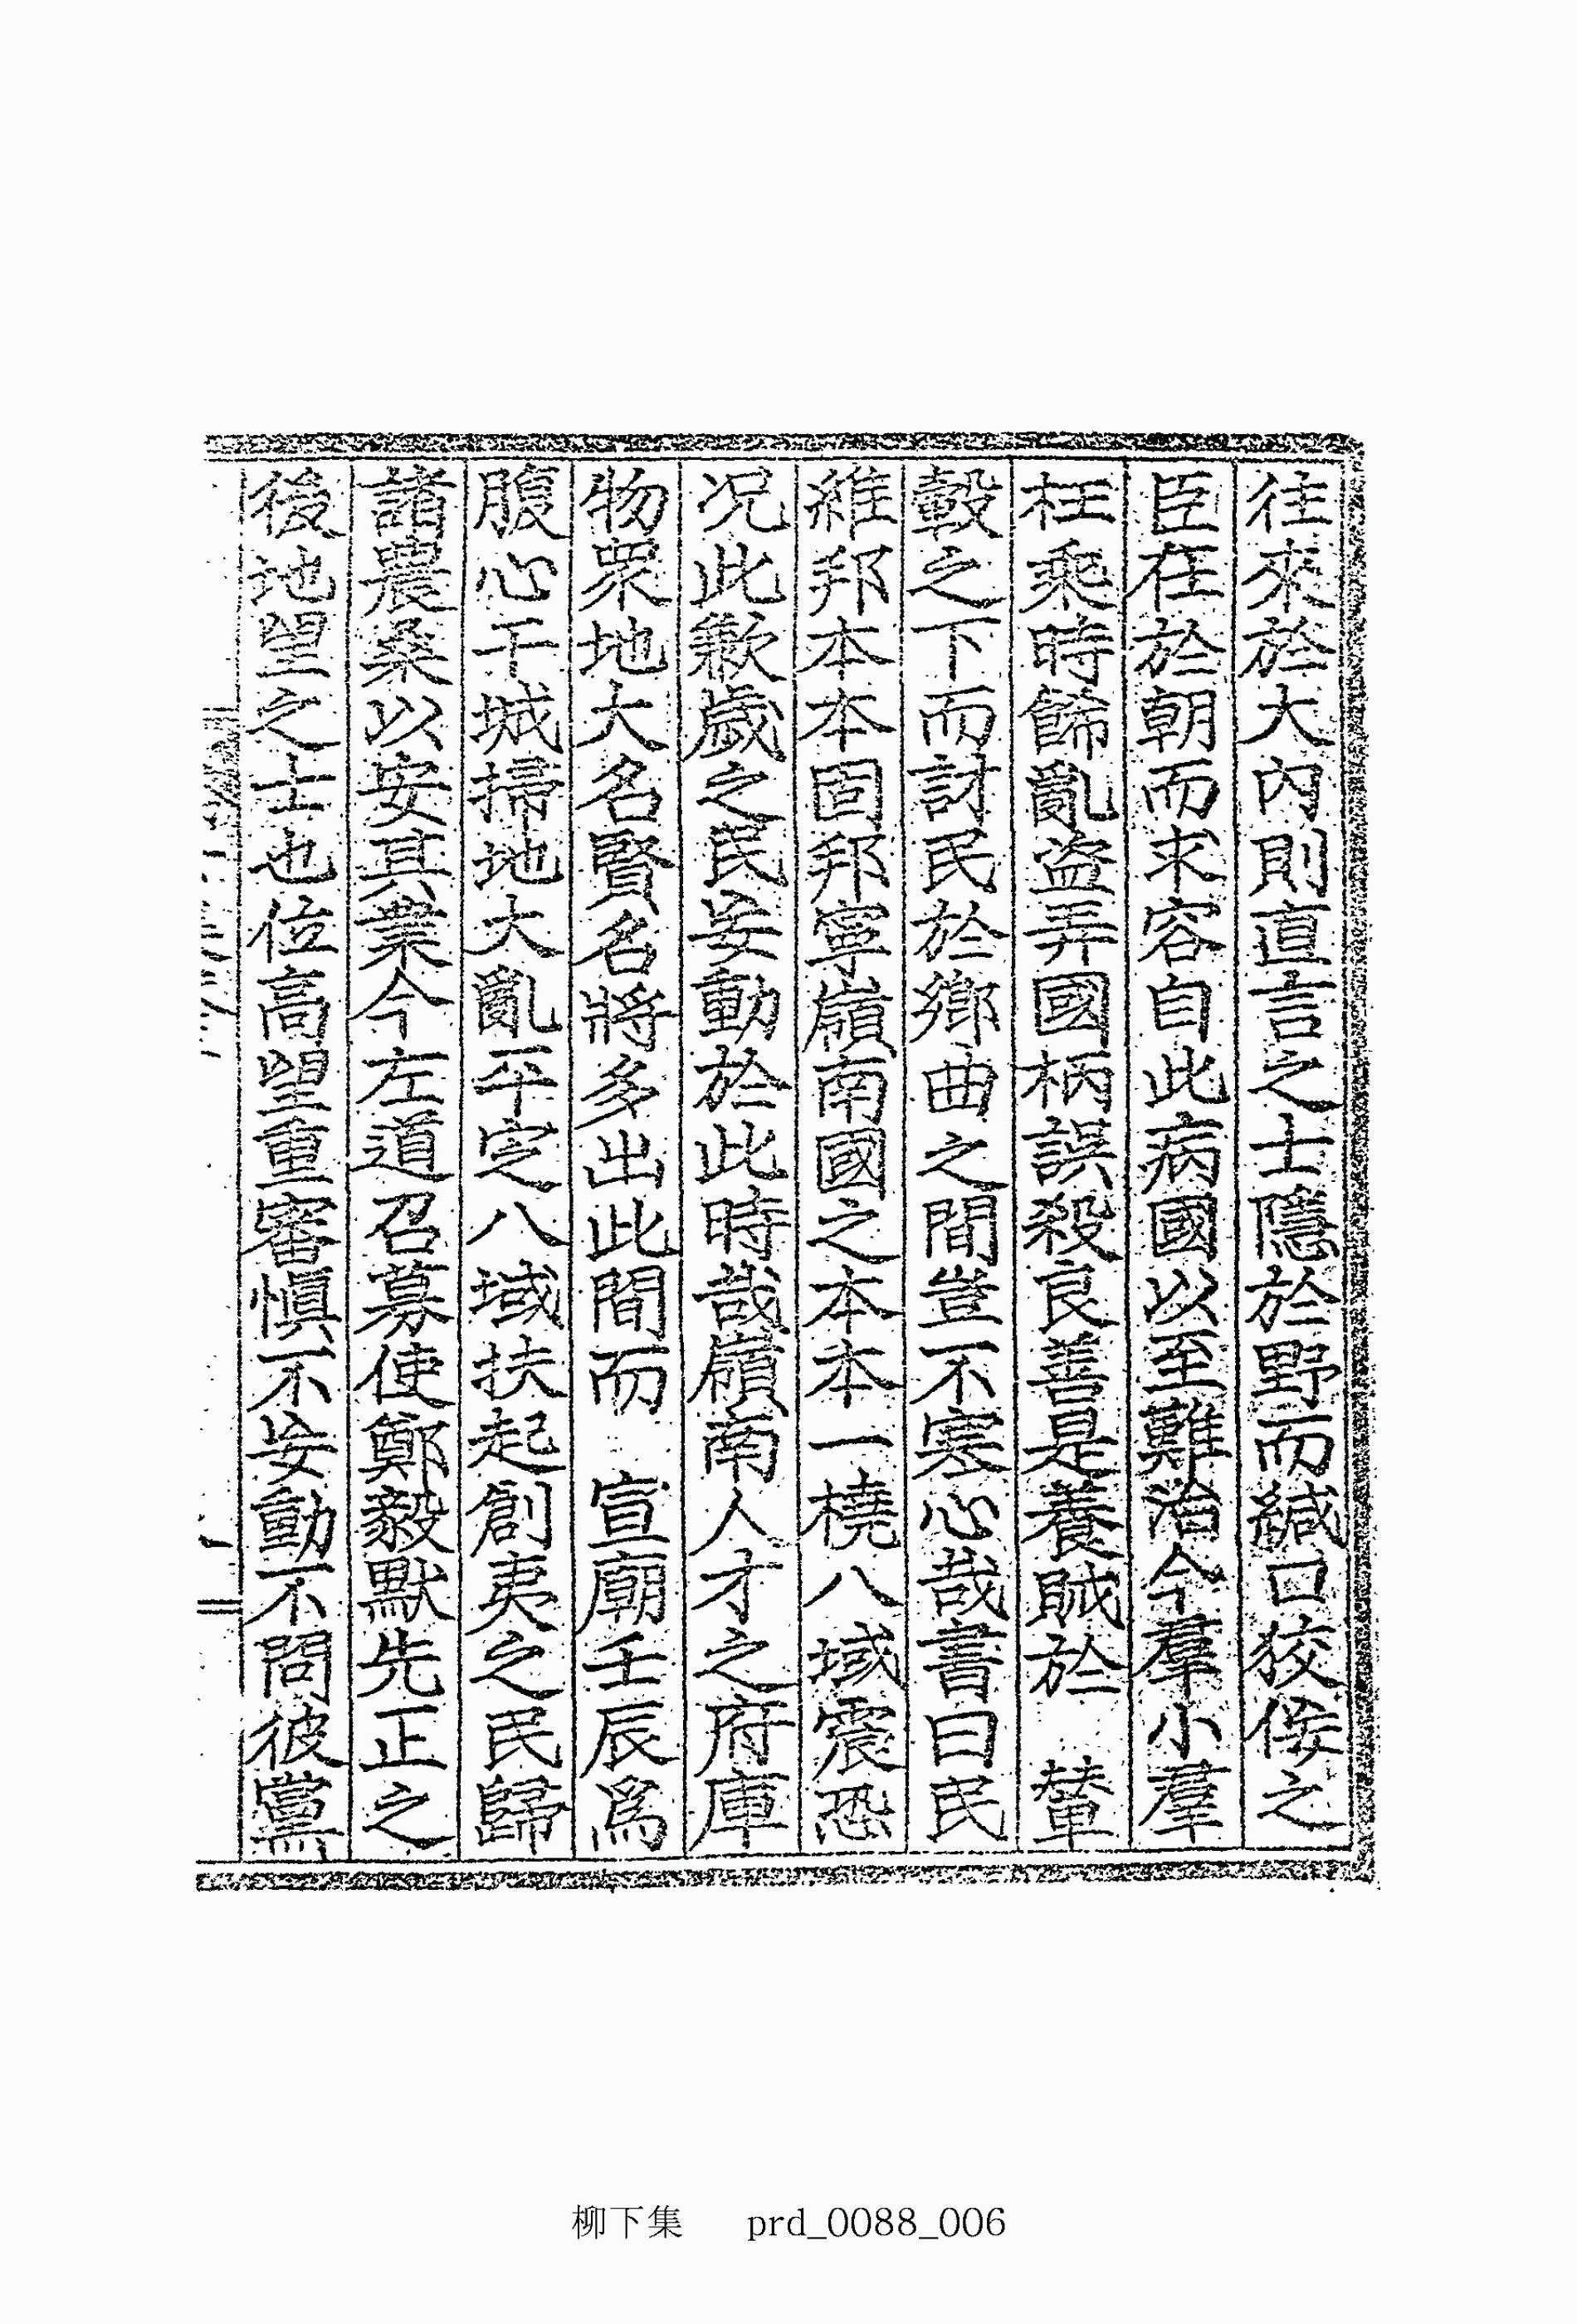 往來於大內則直言之士隱於野而緘口狡侫之
臣在於朝而求容自此病國以至難治今羣小羣
枉乘時餙亂盜弄國柄誤殺良善是養賊於 輦
轂之下而討民於鄉曲之間豈不寒心哉書曰民
維邦本本固邦寧嶺南國之本本一橈八域震恐
况此歉歲之民妄動於此時哉嶺南人才之府庫
物衆地大名賢名將多出此間而 宣廟壬辰爲
腹心干城掃地大亂平定八域扶起創夷之民歸
諸農桑以安其業今左道召募使鄭毅默先正之
後地望之士也位高望重審愼不妄動不問彼黨
柳下集 prd_0088_006